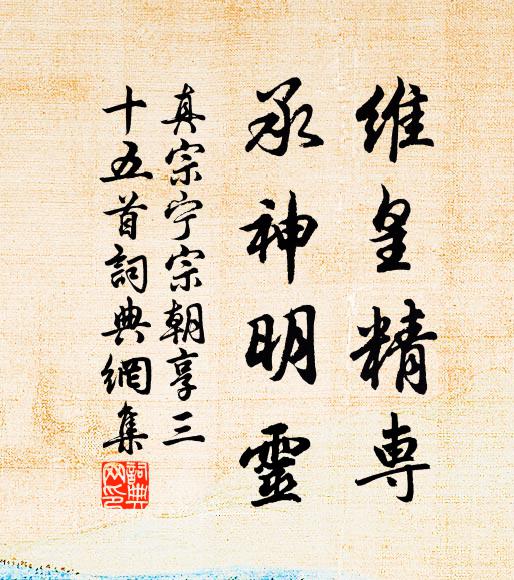 維皇精専
承神明靈
真宗宁宗朝享三
十五首詞典網集
詞典网印